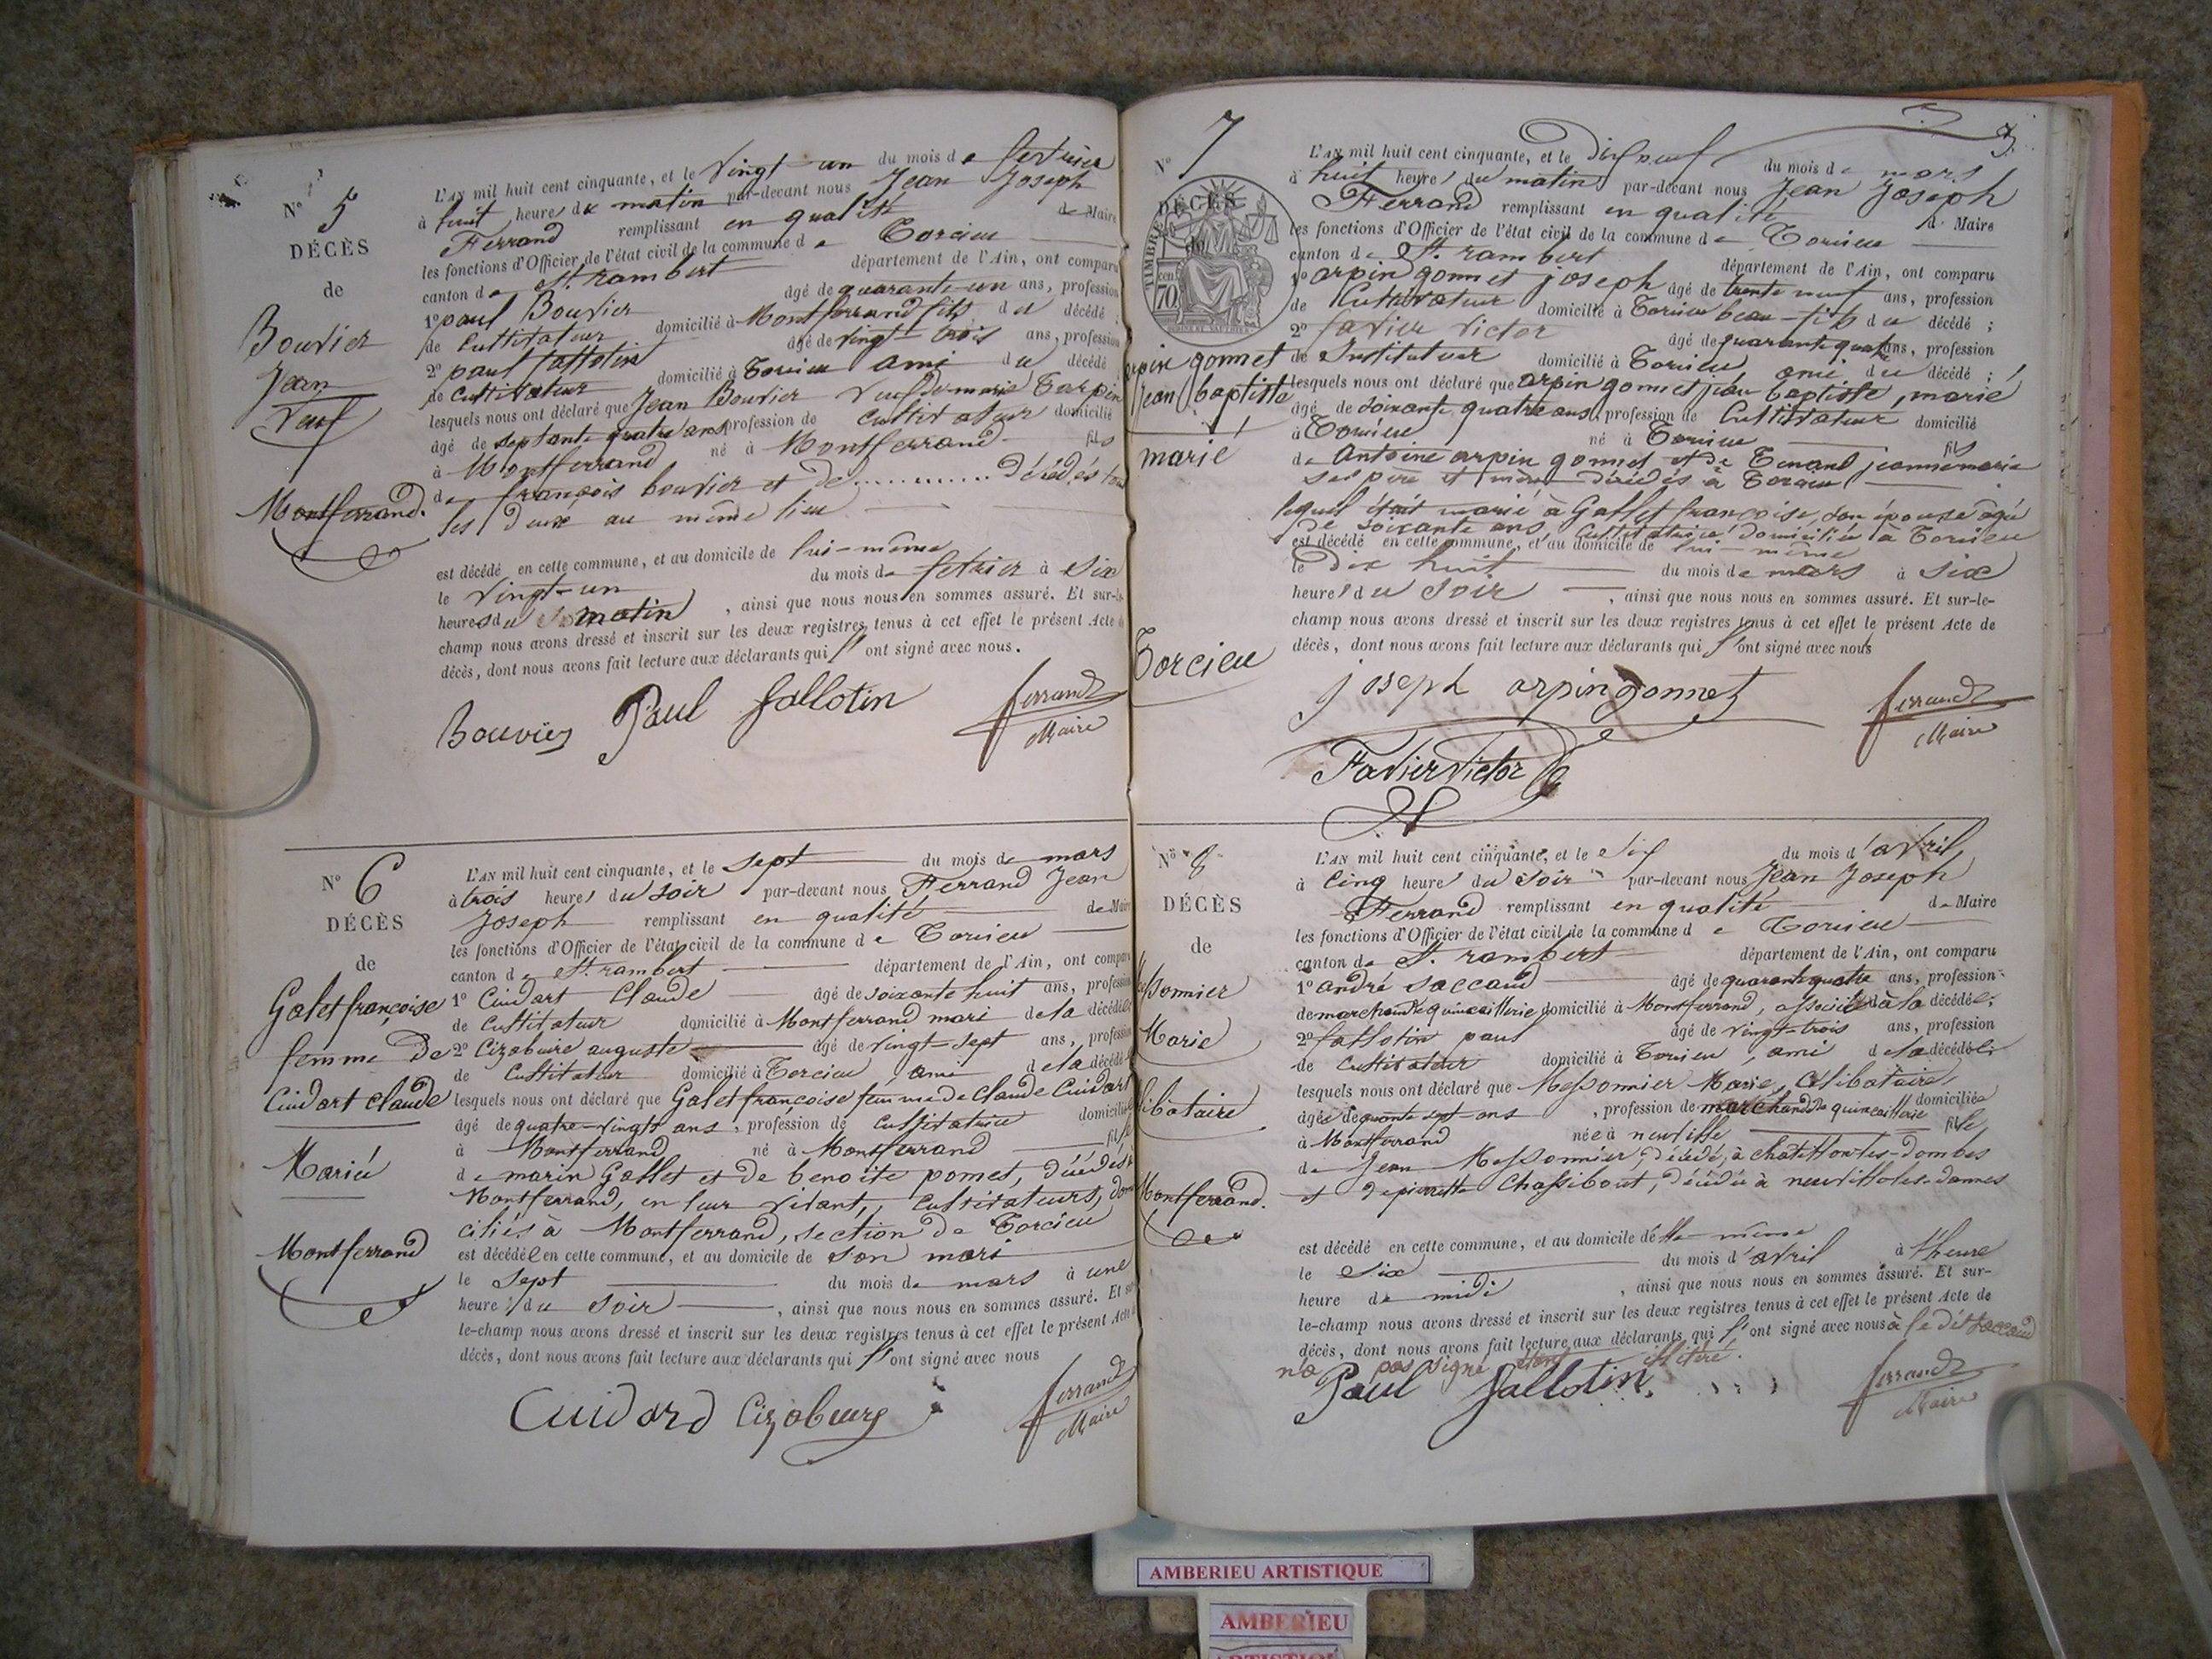 N° 5
DÉCÈS
de
Bouvier
Jean
Veuf
Montferrand.
L'AN mil huit cent cinquante, et le vingt-un du mois de fevrier
à huit heures du matin par-devant nous Jean Joseph
Ferrand remplissant en qualité de Maire
les fonctions d'Officier de l'état civil de la commune de Torcieu
canton de St. rambert département de l'Ain, ont comparu
1° paul Bouvier âgé de quarante-un ans, profession
de Cultivateur domicilié à Montferrand fils du décédé ;
2° paul fallotin âgé de vingt-trois ans, profession
de Cultivateur domicilié à Torcieu ami du décédé
lesquels nous ont déclaré que Jean Bouvier veuf de marie Tarpin
âgé de septante quatre ans, profession de Cultivateur domicilié
à Montferrand né à Montferrand fils
de françois bouvier et de ............ décédés tous
les deux au même lieu
est décédé en cette commune, et au domicile de lui-même
le vingt-un du mois de fevrier à six
heures du matin, ainsi que nous nous en sommes assuré. Et sur-le-
champ nous avons dressé et inscrit sur les deux registres tenus à cet effet le présent Acte de
décès, dont nous avons fait lecture aux déclarants qui l'ont signé avec nous.
Bouvier Paul fallotin ferrand
Maire
N° 6
DÉCÈS
de
Galet françoise
femme de
Cuidart claude
Mariée
Montferrand
L'AN mil huit cent cinquante, et le sept du mois de mars
à trois heures du soir par-devant nous Ferrand Jean
Joseph remplissant en qualité de Maire
les fonctions d'Officier de l'état civil de la commune de Torcieu
canton de St. rambert département de l'Ain, ont comparu
1° Cuidart Claude âgé de soixante huit ans, profession
de Cultivateur domicilié à Montferrand mari de la décédée
2° Cizabuire auguste âgé de vingt-sept ans, profession
de Cultivateur domicilié à Torcieu, ami de la décédée
lesquels nous ont déclaré que Galet françoise femme de Claude Cuidart
âgé de quatre-vingts ans, profession de Cultivatrice domiciliée
à Montferrand né à Montferrand fille
de marin Gallet et de benoite pomet, décédés à
Montferrand, en leur vivant, Cultivateurs, domi
ciliés à Montferrand, section de Torcieu
est décédée en cette commune, et au domicile de son mari
le sept du mois de mars à une
heure du soir, ainsi que nous nous en sommes assuré. Et sur-
le-champ nous avons dressé et inscrit sur les deux registres tenus à cet effet le présent Acte de
décès, dont nous avons fait lecture aux déclarants qui l'ont signé avec nous
Cuidard Cizabuire ferrand
Maire
N° 7
DÉCÈS
TIMBRE
70
arpin gonnet
Jean baptiste
marié
Torcieu
3
L'AN mil huit cent cinquante, et le dix neuf du mois de mars
à huit heures du matin par-devant nous Jean Joseph
Ferrand remplissant en qualité de Maire
les fonctions d'Officier de l'état civil de la commune de Torcieu
canton de St. rambert département de l'Ain, ont comparu
1° arpin gonnet joseph âgé de trente neuf ans, profession
de Cultivateur domicilié à Torcieu beau-fils du décédé ;
2° favier victor âgé de quarante quatre ans, profession
de Instituteur domicilié à Torcieu ami du décédé ;
lesquels nous ont déclaré que arpin gonnet jean baptiste, marié
âgé de soixante quatre ans, profession de Cultivateur domicilié
à Torcieu né à Torcieu fils
de Antoine arpin gonnet et de Tenand jeanne marie
ses père et mère décédés à Torcieu
lequel était marié à Gallet françoise, son épouse agée
de soixante ans, Cultivatrice domiciliée à Torcieu
est décédé en cette commune, et au domicile de lui-même
le Dix huit du mois de mars à six
heures du soir, ainsi que nous nous en sommes assuré. Et sur-le-
champ nous avons dressé et inscrit sur les deux registres tenus à cet effet le présent Acte de
décès, dont nous avons fait lecture aux déclarants qui l'ont signé avec nous
joseph arpin gonnet ferrand
Maire
Favier Victor
N° 8
DÉCÈS
de
Messonnier
Marie
Célibataire
Montferrand.
L'AN mil huit cent cinquante, et le six du mois d'avril,
à Cinq heures du soir par-devant nous Jean Joseph
Ferrand remplissant en qualité de Maire
les fonctions d'Officier de l'état civil de la commune de Torcieu
canton de St. rambert département de l'Ain, ont comparu
1° andré saccaud âgé de quarante quatre ans, profession
de marchand de quincaillerie domicilié à Montferrand, associé à la décédée ;
2° fallotin paul âgé de vingt-trois ans, profession
de Cultivateur domicilié à Torcieu, ami de la décédée ;
lesquels nous ont déclaré que Messonnier Marie, Célibataire,
âgée de quarante sept ans, profession de marchande de quincaillerie domiciliée
à Montferrand née à neuville fille
de Jean Messonnier, décédé, à chatillon-les-dombes
et de pierrette Chassibout, décédée à neuville-les-dames
est décédé en cette commune, et au domicile d'elle même
le six du mois d'avril à l'heure
heure de midi, ainsi que nous nous en sommes assuré. Et sur-
le-champ nous avons dressé et inscrit sur les deux registres tenus à cet effet le présent Acte de
décès, dont nous avons fait lecture aux déclarants qui l'ont signé avec nous à le dit saccaud
n'a pas signé étant illitéré.
Paul fallotin. ferrand
Maire
AMBERIEU ARTISTIQUE
AMBERIEU
ARTISTIQUE